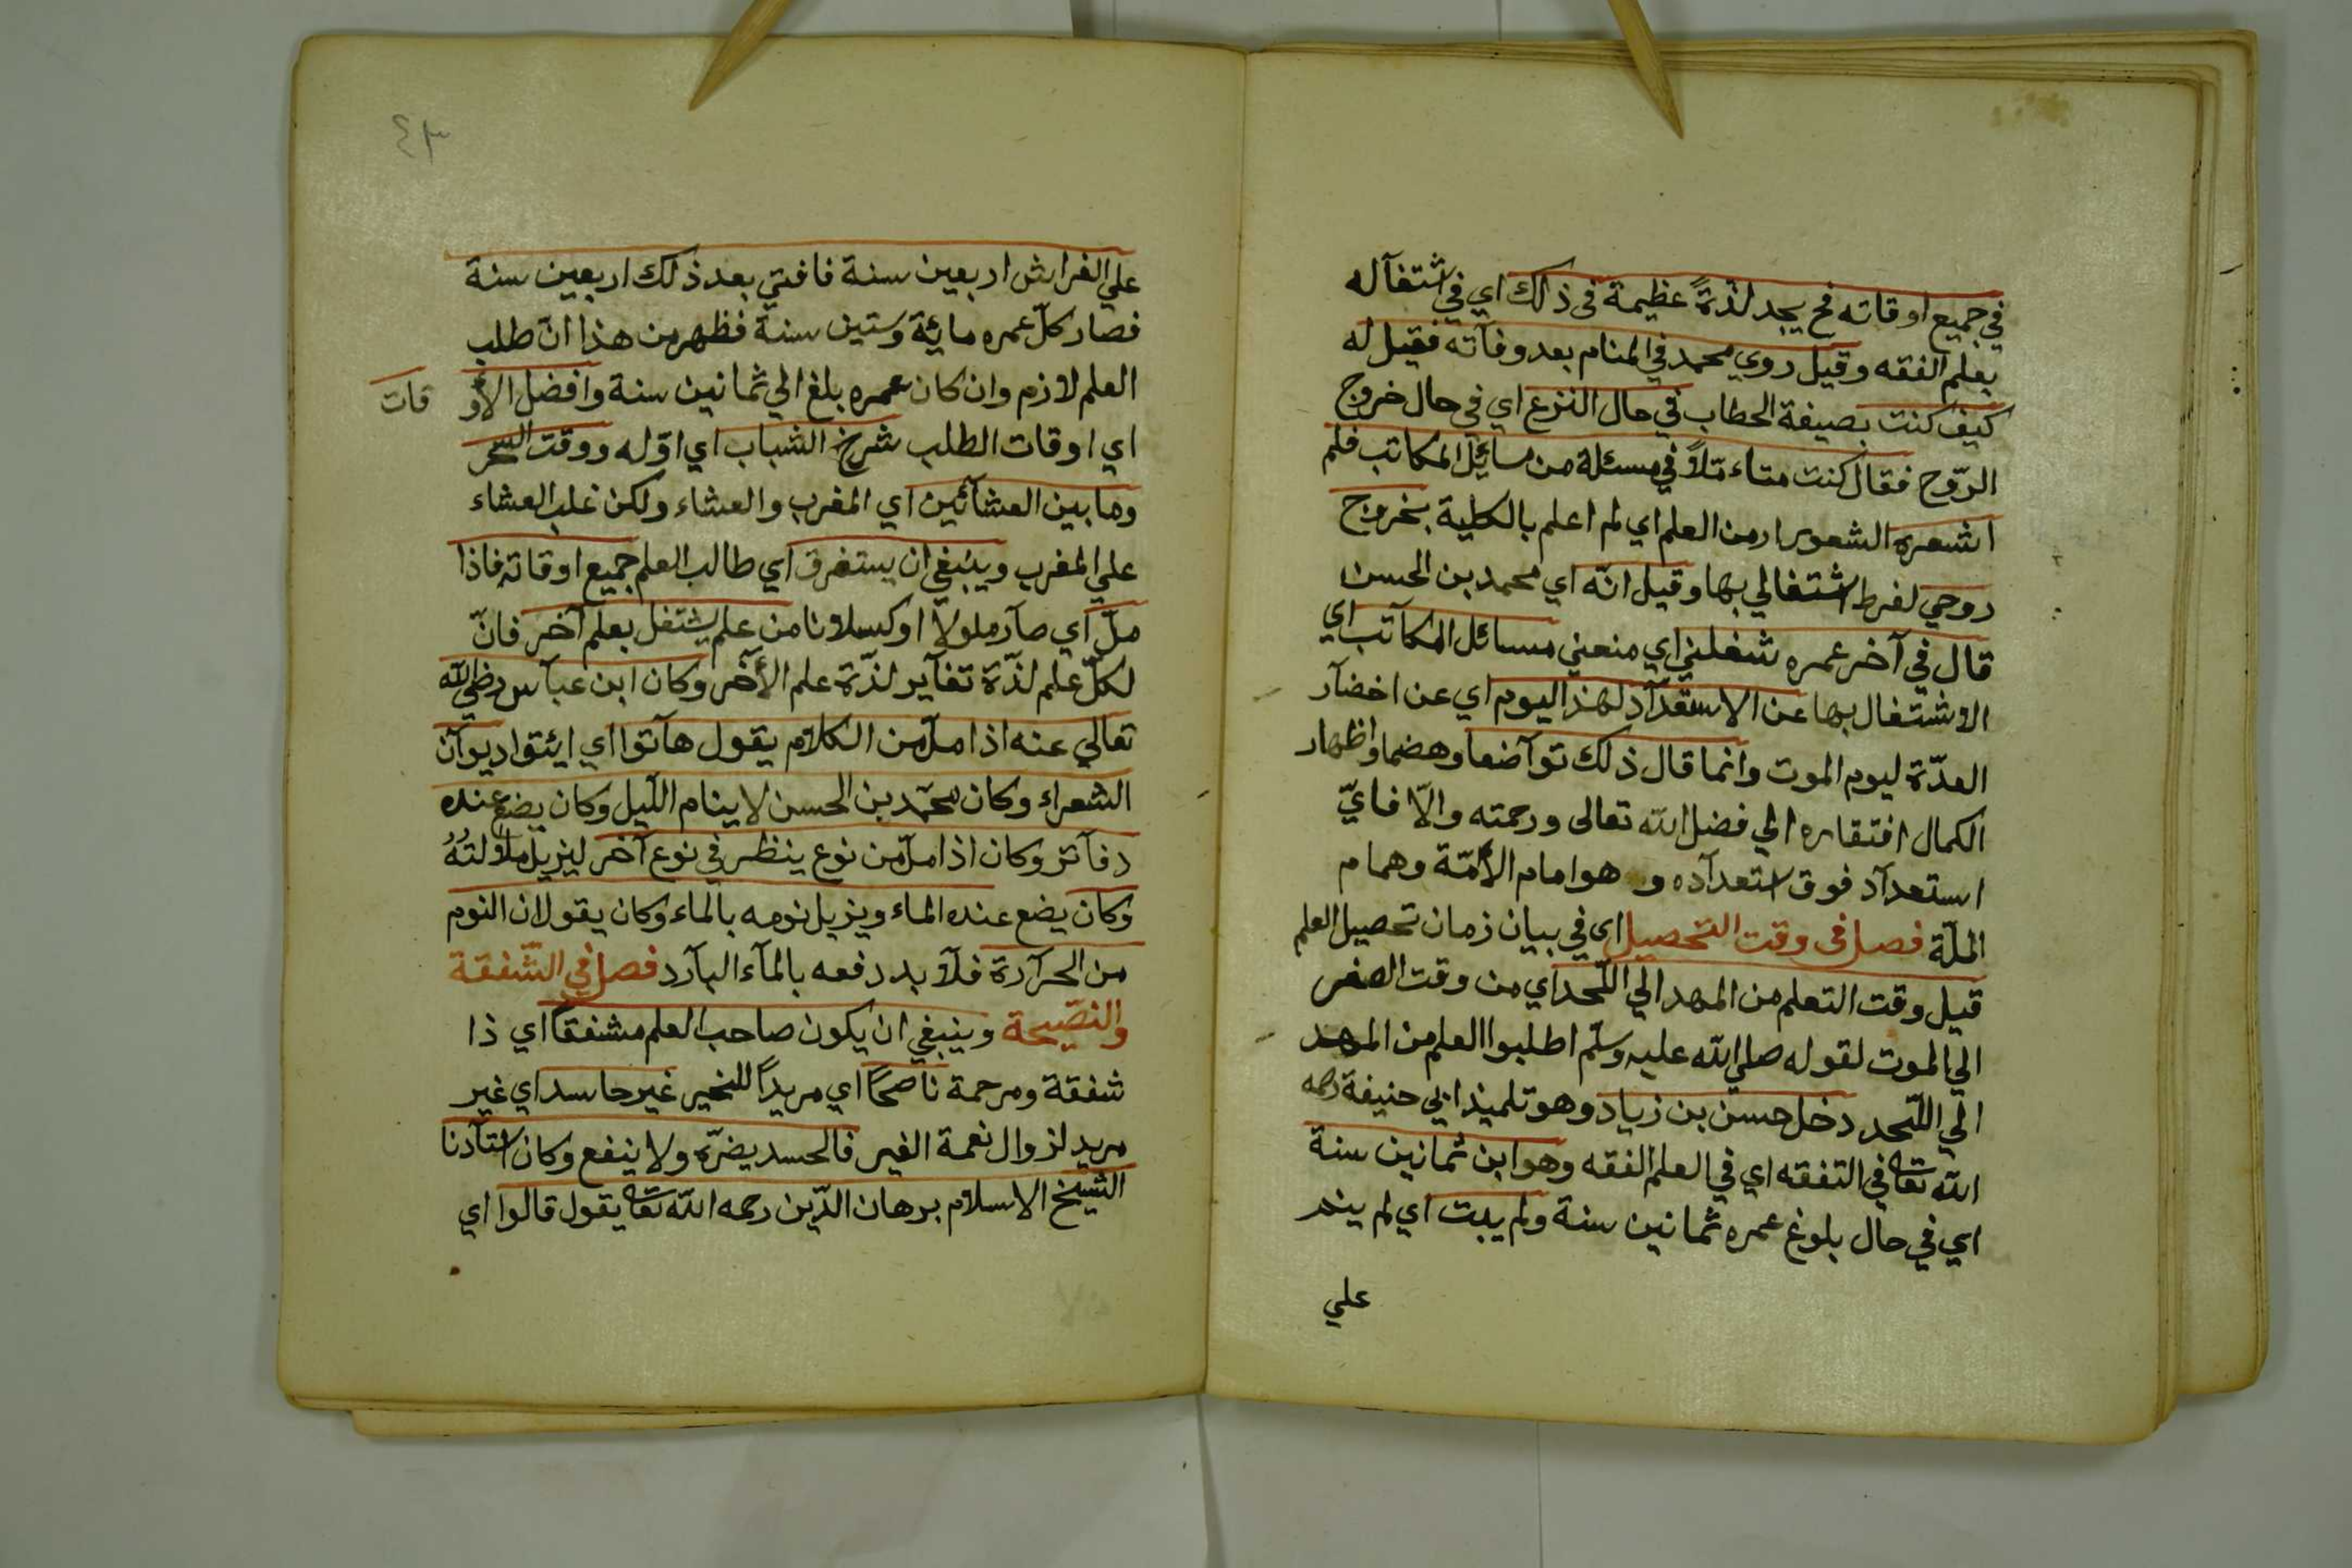 في جميع اوقاته فح يجد لذة عظيمة في ذلك اي في اشتغاله
بعلم الفقه وقيل روي محمد في المنام بعد وفاته فقيل له
كيف كنت بصيغة الخطاب في حال النزع اي في حال خروج
الرّوح فقال كنت متاءمّلاً في مسئلة من مسائل المكاتب فلم
اشعره الشعور من العلم اي لم اعلم بالكلية بخروج
روحي لفرط اشتغالي بها وقيل انّه اي محمد بن الحسن
قال في آخر عمره شغلني اي منعني مسائل المكآتب اي
الاشتغال بها عن الاستعدآد لهذا اليوم اي عن احضآر
العدّة ليوم الموت وانما قال ذلك توآضعا وهضما واظهار
الكمال افتقاره الي فضل الله تعالى ورحمته والّا فايّ
استعدآد فوق استعدآده و هو امام الأئمّة وهمام
الملّة فصل في وقت التحصيل اي في بيان زمان تحصيل العلم
قيل وقت التعلم من المهد الي اللّحد اي من وقت الصغر
الي الموت لقوله صلي الله عليه وسلّم اطلبوا العلم من المهد
الي اللّحد دخل حسن بن زياد وهو تلميذ ابي حنيفة رحمه
الله تعا في التفقه اي في العلم الفقه وهو ابن ثمانين سنة
اي في حال بلوغ عمره ثمانين سنة ولم يبت اي لم ينم
علي
٤٣
علي الفراش اربعين سنة فافتي بعد ذلك اربعين سنة
فصار كلّ عمره مائة وستين سنة فظهر من هذا انّ طلب
العلم لازم وان كان عمره بلغ الي ثمانين سنة وافضل الأو
قات
اي اوقات الطلب شرخ الشباب اي اوّله ووقت السّحر
وما بين العشائين اي المغرب والعشاء ولكن غلب العشاء
علي المغرب وينبغي ان يستغرق اي طالب العلم جميع اوقاته فاذا
ملّ اي صآر ملولاً او كسلانا من علم يشتغل بعلم آخر فانّ
لكلّ علم لذّة تغآير لذّة علم الأخر وكان ابن عبآس رضي الله
تعالي عنه اذا ملّ من الكلام يقول هآتوا اي ائتوا ديوآن
الشعراء وكان محمّد بن الحسن لا ينام اللّيل وكان يضع عنده
دفآتر وكان اذا ملّ من نوع ينظر في نوع آخر ليزيل ملالتهُ
وكان يضع عنده الماء ويزيل نومه بالماء وكان يقول ان النوم
من الحرآرة فلآ بد دفعه بالمآء البآرد فصل في الشّفقة
والنّصيحة وينبغي ان يكون صاحب العلم مشفقًا اي ذا
شفقة ومرحمة ناصحًا اي مريدًا للخير غير حاسد اي غير
مريد لزوال نعمة الغير فالحسد يضرّه ولا ينفع وكان استآدنا
الشيخ الاسلام برهان الدّين رحمه الله تعا يقول قالوا اي